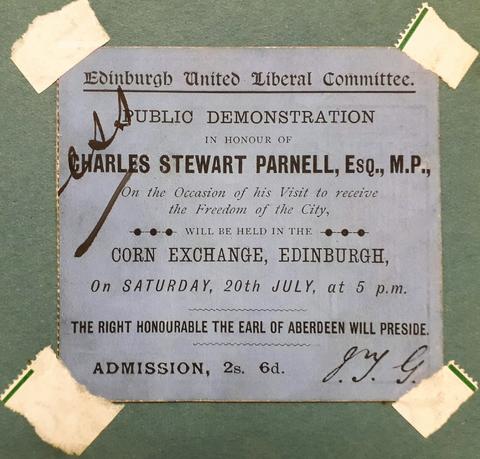 Edinburgh United Liberal Committee.
PUBLIC DEMONSTRATION
IN HONOUR OF
CHARLES STEWART PARNELL, ESQ., M.P.,
On the Occasion of his Visit to receive
the Freedom of the City,
WILL BE HELD IN THE
CORN EXCHANGE, EDINBURGH,
On SATURDAY, 20th JULY, at 5 p.m.
THE RIGHT HONOURABLE THE EARL OF ABERDEEN WILL PRESIDE.
ADMISSION, 2s. 6d.
J. T. G.